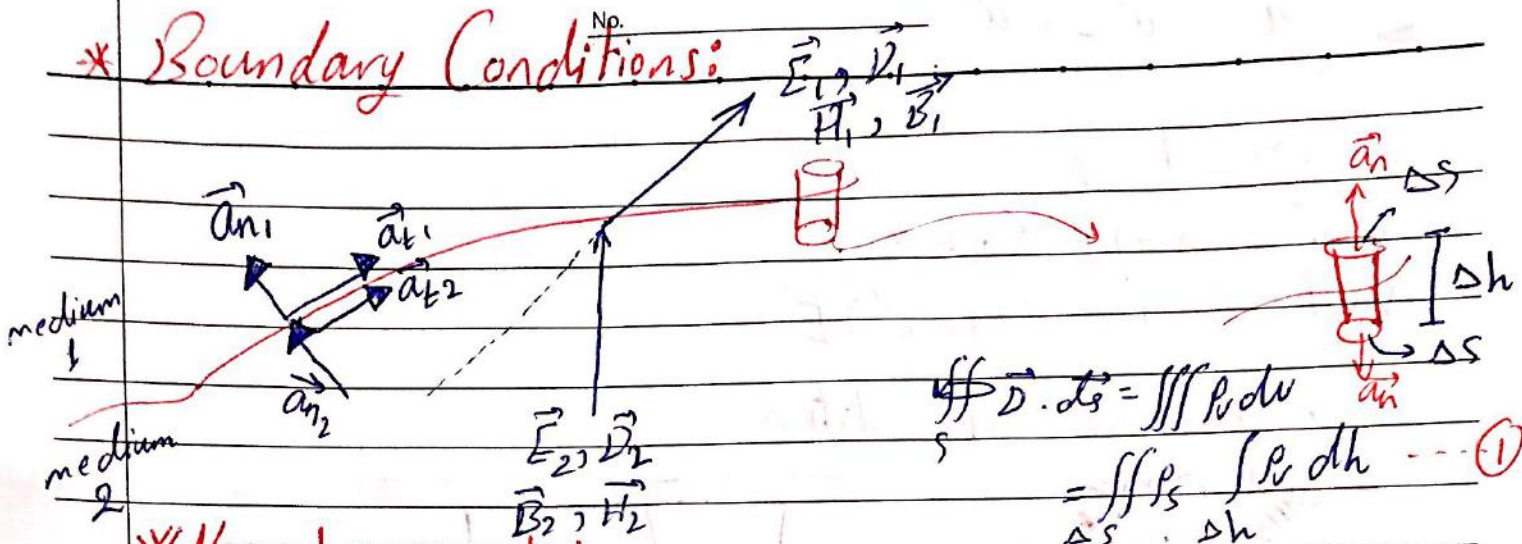 No.
* Boundary Conditions:
E⃗₁, D⃗₁
H⃗₁, B⃗₁
a⃗n₁
a⃗t₁
a⃗t2
a⃗n₂
medium
1
medium
2
E⃗₂, D⃗₂
B⃗₂, H⃗₂
a⃗n
ΔS
Δh
ΔS
a⃗n
∯ D⃗ . ds⃗ = ∭ ρv dv
S
= ∬ ρs ∫ ρv dh ---- ①
ΔS Δh